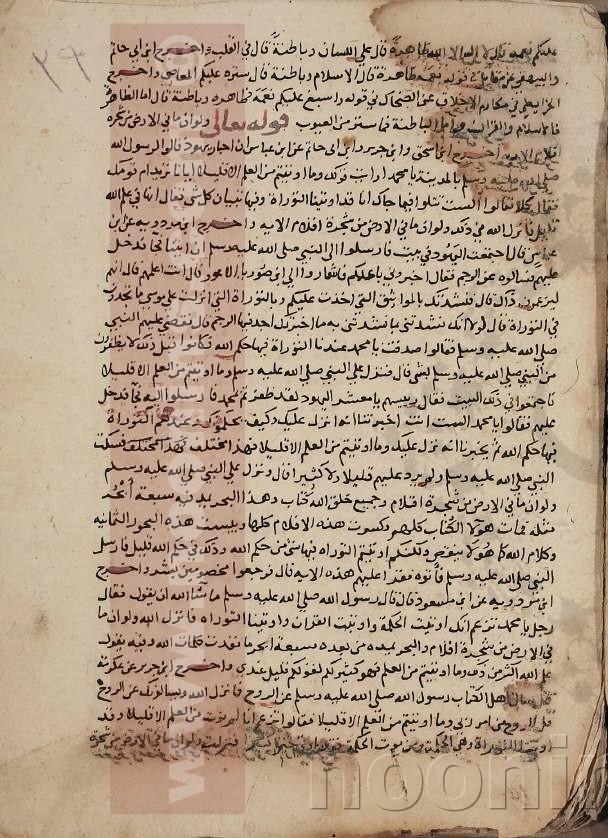 ٢٩
عليكم نعمه قال لا اله الا الله ظاهرة قال على اللسان وباطنة قال في القلب واخرج ابن ابي حاتم
والبيهقي عن مقاتل في قوله نعمه ظاهرة قال الاسلام وباطنة قال ستره عليكم المعاصي واخرج
الخرايطي في مكارم الاخلاق عن الضحاك في قوله واسبغ عليكم نعمه ظاهره وباطنة قال اما الظاهرة
فالاسلام والقران واما الباطنة فما ستر من العيوب قوله تعالى ولوان ما في الارض من شجرة
اقلام الايه اخرج ابن اسحق وابن جرير وابن ابي حاتم عن ابن عباس ان احبار يهود قالوا لرسول الله
صلى الله عليه وسلم بالمدينة يا محمد ارايت قولك وما اوتيتم من العلم الا قليلا ايانا تريد ام قومك
فقال كلا فقالوا الست تتلوا فيما جاك انا قد اوتينا التوراة وفيها تبيان كل شي فقال انها في علم الله
قليل فانزل الله في ذلك ولوان ما في الارض من شجرة اقلام الايه واخرج ابن مردويه عن ابن
عباس قال اجتمعت اليهود في بيت فارسلوا الى النبي صلى الله عليه وسلم ان ايتنا فجا فدخل
عليهم فسالوه عن الرجم فقال اخبروني باعلمكم فاشاروا الى ابن صوريا الاعور قال انت اعلمهم قال انهم
ليزعمون ذاك قال فنشدتك بالمواثيق التي اخذت عليكم وبالتوراة التي انزلت على موسى ما تجدون
في التوراة قال لولا انك نشدتني بما نشدتني به ما اخبرتك اجد فيها الرجم قال فقضى عليهم النبي
صلى الله عليه وسلم فقالوا صدقت يا محمد عندنا التوراة فيها حكم الله فكانوا قبل ذلك لا يظفرون
من النبي صلى الله عليه وسلم بشي قال فنزل على النبي صلى الله عليه وسلم وما اوتيتم من العلم الا قليلا
فاجتمعوا في ذلك البيت فقال رييسهم يا معشر اليهود لقد ظفرتم بمحمد فارسلوا اليه فجا فدخل
عليهم فقالوا يا محمد الست انت اخبرتنا انه انزل عليك وكيف يحكمونك وعندهم التوراة
فيها حكم الله ثم تخبرنا انه نزل عليك وما اوتيتم من العلم الا قليلا فهذا مختلف فسكت
النبي صلى الله عليه وسلم ولم يرد عليهم قليلا ولا كثيرا قال ونزل على النبي صلى الله عليه وسلم
ولوان ما في الارض من شجرة اقلام وجميع خلق الله كتاب وهذا البحر يمد فيه سبعة ابحر
مثله فمات هولا الكتاب كلهم وكسرت هذه الاقلام كلها ويبست هذه البحور الثمانيه
وكلام الله كما هو لا ينقص ولكنكم اوتيتم التوراة فيها شي من حكم الله وذلك في حكم الله قليل فارسل
النبي صلى الله عليه وسلم فاتوه فقرا عليهم هذه الايه قال فرجعوا مخصومين بشر واخرج
ابن مردويه عن ابن مسعود قال قال رسول الله صلى الله عليه وسلم ما شا الله ان يقول فقال
رجل يا محمد تزعم انك اوتيت الحكمة واوتيت القران واوتينا التوراة فانزل الله ولوان ما
في الارض من شجرة اقلام والبحر يمده من بعده سبعة ابحر ما نفدت كلمات الله وفيه يقول
علم الله اكثر من ذلك وما اوتيتم من العلم فهو كثير لكم لقولكم قليل عندي واخرج ابن جرير عن عكرمة
قال سال اهل الكتاب رسول الله صلى الله عليه وسلم عن الروح فانزل الله ويسالونك عن الروح
قل الروح من امر ربي وما اوتيتم من العلم الا قليلا فقالوا تزعم انا لم نوت من العلم الا قليلا وقد
اوتينا التوراة وهي الحكمة ومن يوت الحكمة فقد اوتي خيرا كثيرا فنزلت ولوان ما في الارض من شجرة
noonin